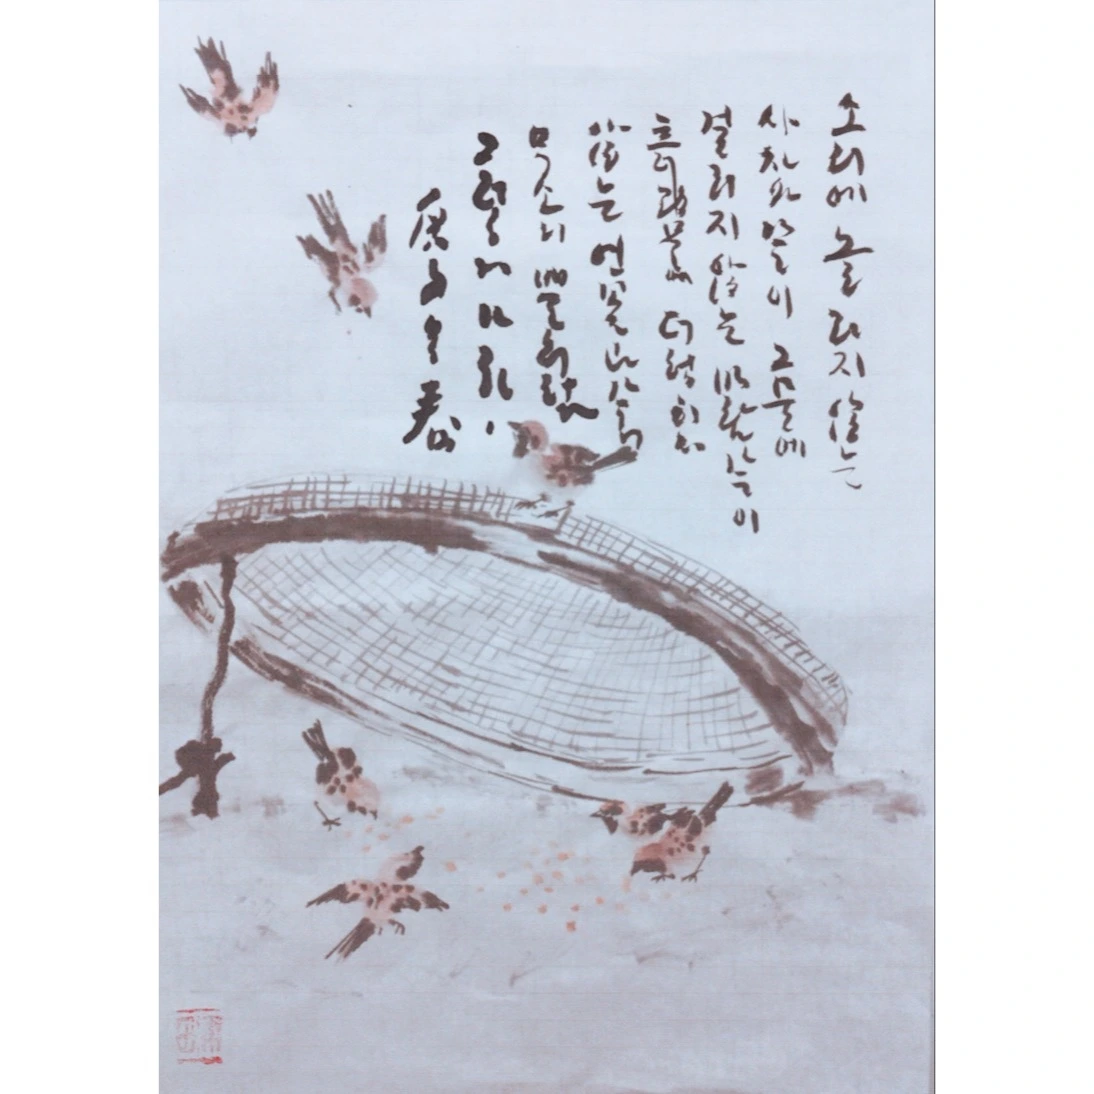 소리에 놀라지 않는
사자와 같이 그물에
걸리지 않는 바람같이
더럽히지
않는 연꽃과 같이
무소의 뿔처럼
그렇게 가라.
庚子 春